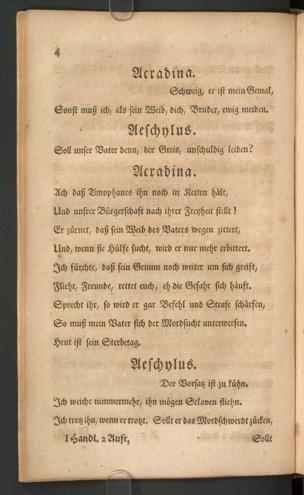 4
Acradina.
Schweig, er ist mein Gemal,
Sonst muß ich, als sein Weib, dich, Bruder, ewig meiden.
Aeschylus.
Soll unser Vater denn, der Greis, unschuldig leiden?
Acradina.
Ach daß Timophanes ihn noch in Ketten hält,
Und unsrer Bürgerschaft nach ihrer Freyheit stellt!
Er zürnet, daß sein Weib des Vaters wegen zittert,
Und, wenn sie Hülfe sucht, wird er nur mehr erbittert.
Ich fürchte, daß sein Grimm noch weiter um sich greift,
Flieht, Freunde, rettet euch, eh die Gefahr sich häuft.
Sprecht ihr, so wird er gar Befehl und Strafe schärfen,
So muß mein Vater sich der Mordsucht unterwerfen.
Heut ist sein Sterbetag.
Aeschylus.
Der Vorsatz ist zu kühn.
Ich weiche nimmermehr, ihn mögen Sclaven fliehn.
Ich trotz ihn, wenn er trotzt. Sollt er das Mordschwerdt zücken,
1 Handl. 2 Auft.
Sollt